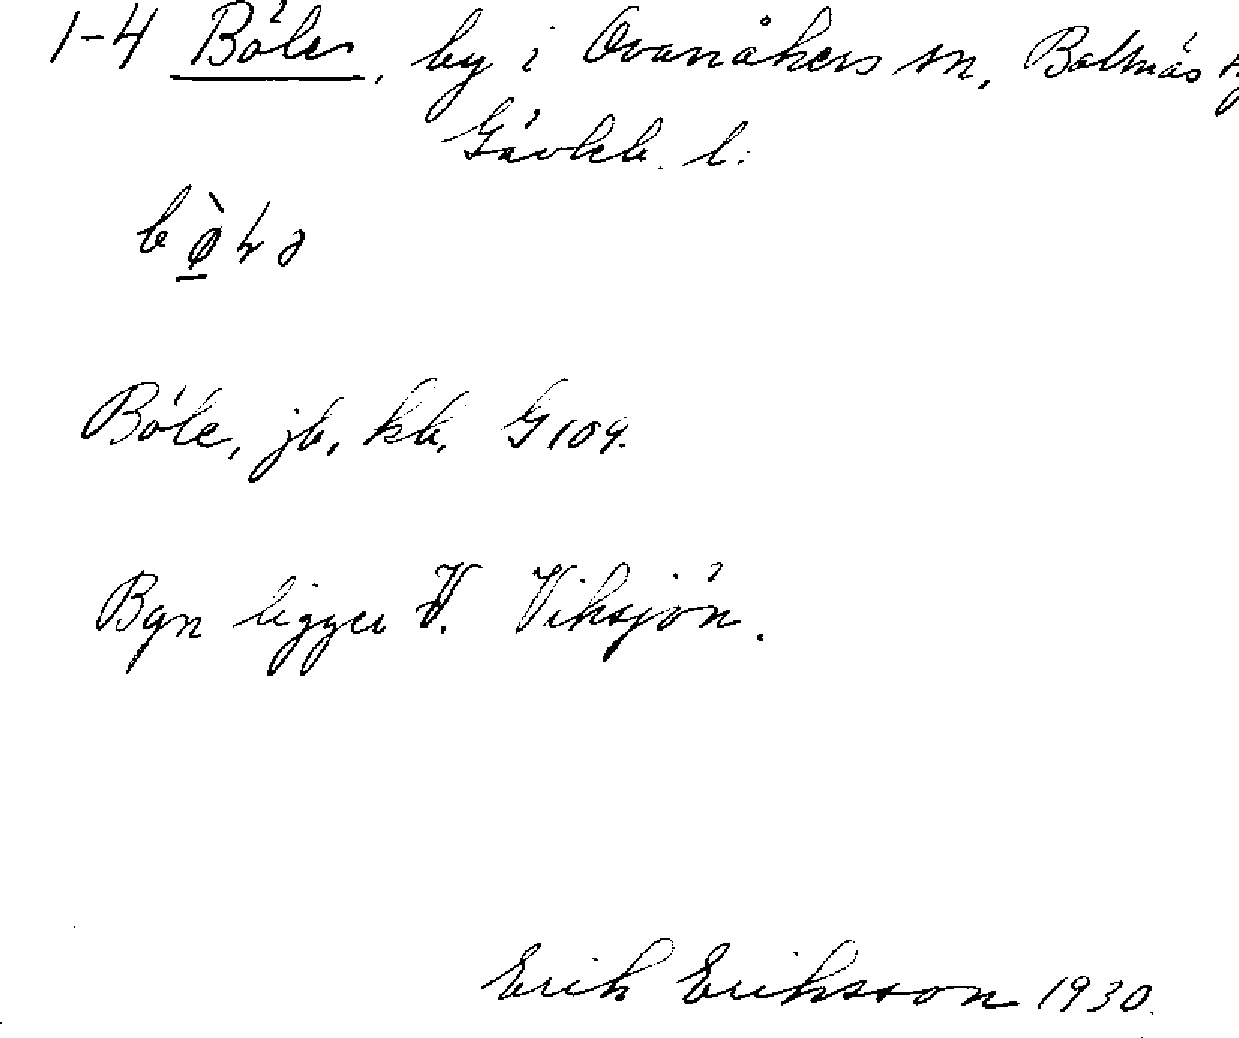 1-4 Böle, by i Ovanåkers sn, Bollnäs
Gävleb. l.
Böle, jb, kk, G 109.
Byn ligger V. Viksjön.
Erik Eriksson 1930.